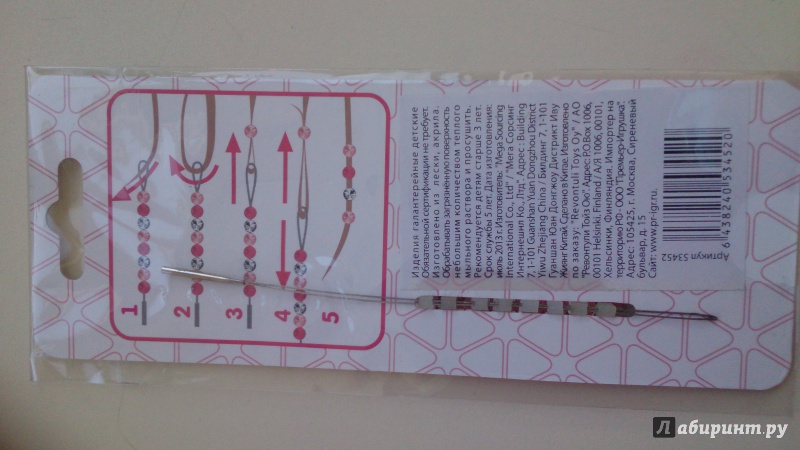 Изделия галантерейные детские
Обязательной сертификации не требует.
Изготовлено из лески, акрила.
Обрабатывать загрязненную поверхность
небольшим количеством теплого
мыльного раствора и просушить.
Рекомендуется детям старше 3 лет.
Срок службы 5 лет. Дата изготовления:
июль 2013 г. Изготовитель: "Mega Sourcing
International Co., Ltd" / "Мега Сорсинг
Интернешнл Ко., Лтд". Адрес: Building
7, 1-101 Guanshan Yuan / Dongzhou District
Yiwu Zhejiang China / Билдинг 7, 1-101
Гуаншан Юан Донгжоу Дистрикт Иву
Живенг Китай. Сделано в Китае. Изготовлено
по заказу: "Revontuli Toys Oy" / АО
"Ревонтули Тойз Ою". Адрес: P.O.Box 1006,
00101 Helsinki, Finland / А/Я 1006, 00101,
Хельсинки, Финляндия. Импортер на
территорию РФ: ООО "Премьер-Игрушка".
Адрес: 105425, г. Москва, Сиреневый
бульвар, д. 15
Сайт: www.pr-igr.ru.
Артикул 53452
6 438240 534520
1
2
3
4
5
Лабиринт.ру